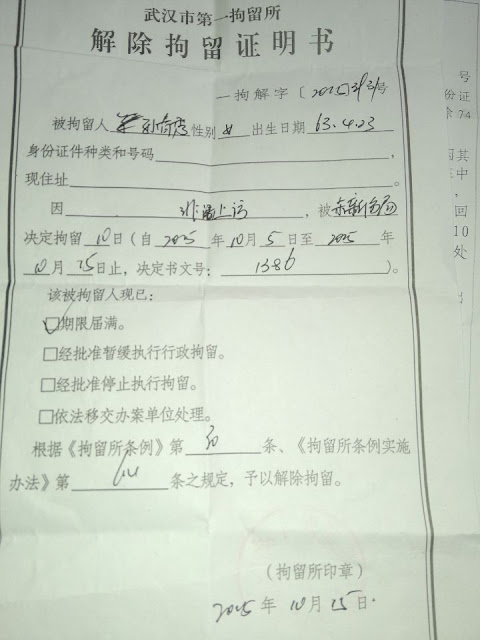 武汉市第一拘留所
解除拘留证明书
一拘解字〔2025〕 号
被拘留人 性别 女 出生日期 63.4.23
身份证件种类和号码 ,
现住址 。
因 上访 , 被
决定拘留 10日(自 2025 年10月 5日至 2025 年
10月 15日止, 决定书文号: 1386 )。
该被拘留人现已:
☑期限届满。
□经批准暂缓执行行政拘留。
□经批准停止执行拘留。
□依法移交办案单位处理。
根据《拘留所条例》第 条、《拘留所条例实施
办法》第 条之规定, 予以解除拘留。
(拘留所印章)
2025 年 10 月 15 日.
号
证
74
其
中
,
回
10
处